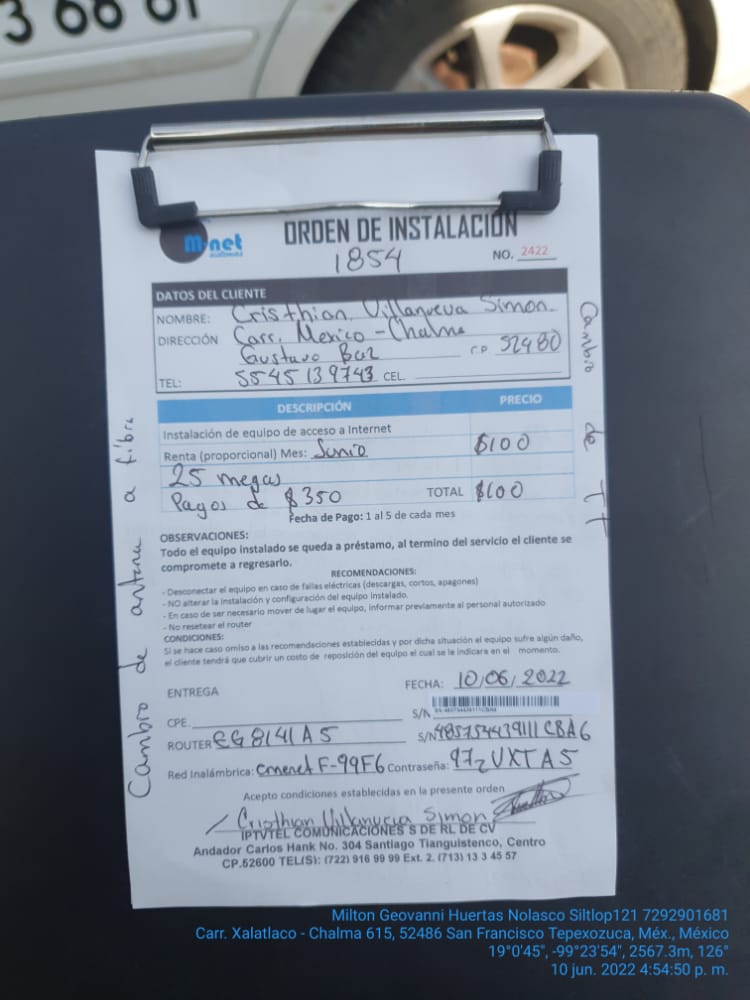 3 66 61
M-net
ORDEN DE INSTALACIÓN
1854
NO. 2422
DATOS DEL CLIENTE
NOMBRE: Cristhian Villanueva Simon
DIRECCIÓN Carr. Mexico - Chalma
Gustavo Baz C.P 52480
TEL: 5545139743 CEL.
DESCRIPCIÓN PRECIO
Instalación de equipo de acceso a Internet
Renta (proporcional) Mes: Junio $100
25 megas
Pagos de $350 TOTAL $100
Fecha de Pago: 1 al 5 de cada mes
OBSERVACIONES:
Todo el equipo instalado se queda a préstamo, al termino del servicio el cliente se
compromete a regresarlo.
RECOMENDACIONES:
- Desconectar el equipo en caso de fallas eléctricas (descargas, cortos, apagones)
- NO alterar la instalación y configuración del equipo instalado.
- En caso de ser necesario mover de lugar el equipo, informar previamente al personal autorizado
- No resetear el router
CONDICIONES:
Si se hace caso omiso a las recomendaciones establecidas y por dicha situación el equipo sufre algún daño,
el cliente tendrá que cubrir un costo de reposición del equipo el cual se le indicara en el momento.
ENTREGA FECHA: 10/06/2022
CPE S/N
ROUTER EG8141A5 S/N 485754439111CBA6
Red Inalámbrica: F-99F6 Contraseña: 97zUXTA5
Acepto condiciones establecidas en la presente orden
Cristhian Villanueva Simon
IPTVTEL COMUNICACIONES S DE RL DE CV
Andador Carlos Hank No. 304 Santiago Tianguistenco, Centro
CP.52600 TEL(S): (722) 916 99 99 Ext. 2. (713) 13 3 45 57
Cambio de antena a fibra
Cambio de TT
Milton Geovanni Huertas Nolasco Siltlop121 7292901681
Carr. Xalatlaco - Chalma 615, 52486 San Francisco Tepexozuca, Méx., México
19°0'45", -99°23'54", 2567.3m, 126°
10 jun. 2022 4:54:50 p. m.